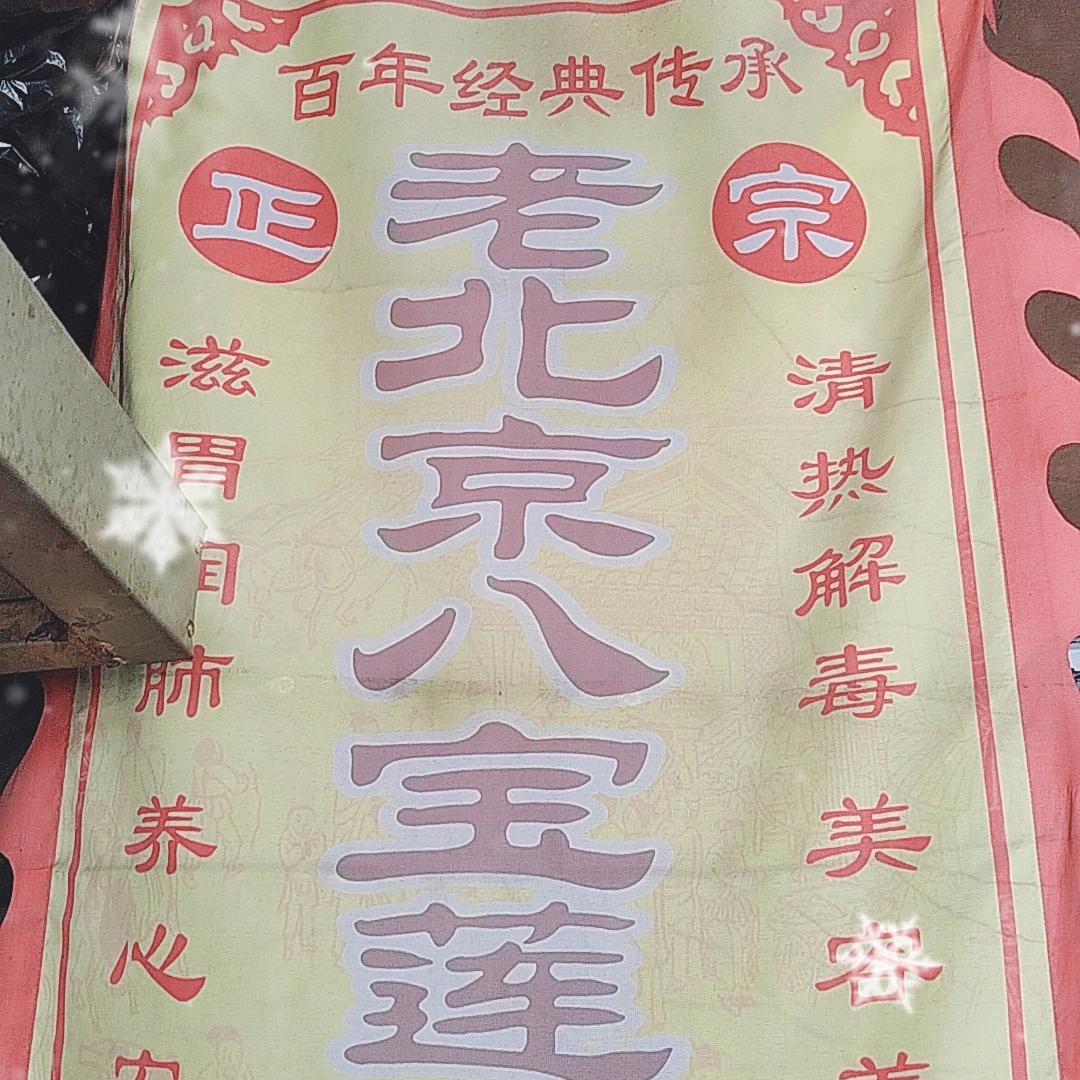 百年经典传承
正 宗
老北京八宝莲
清热解毒 美
滋胃润肺 养心